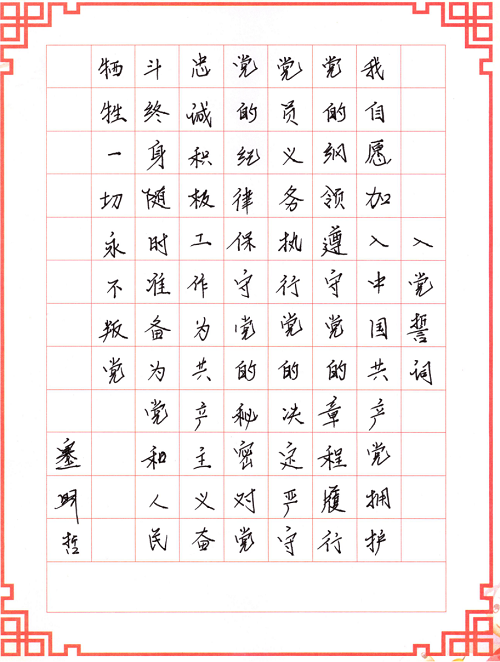 入党誓词
我自愿加入中国共产党拥护
党的纲领遵守党的章程履行
党员义务执行党的决定严守
党的纪律保守党的秘密对党
忠诚积极工作为共产主义奋
斗终身随时准备为党和人民
牺牲一切永不叛党
明哲